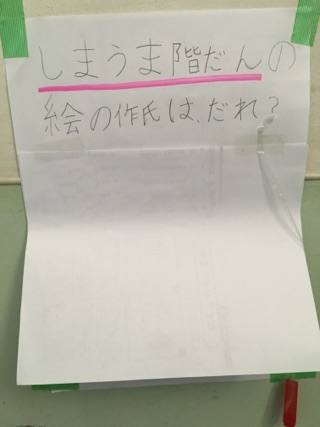 しまうま階だんの
絵の作氏は、だれ?